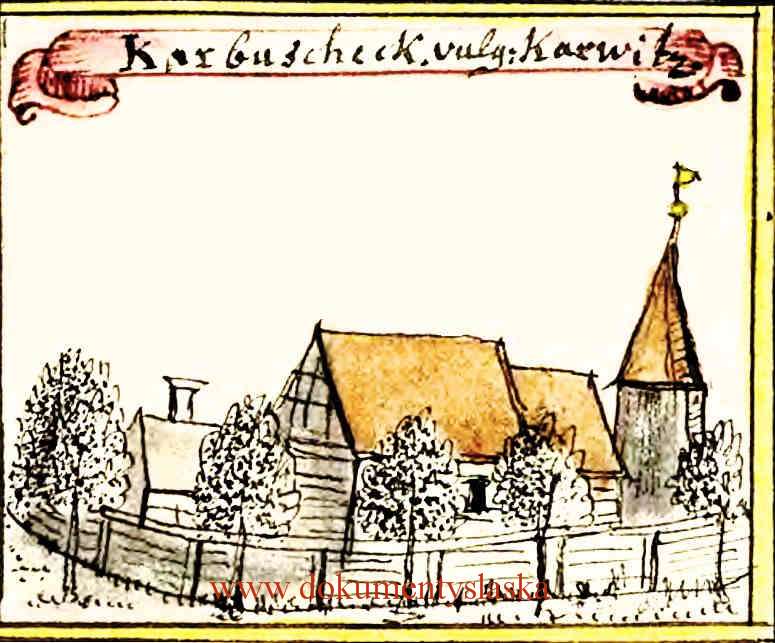 Karbuscheck. vulg: Karwitz
www.dokumentyslaska